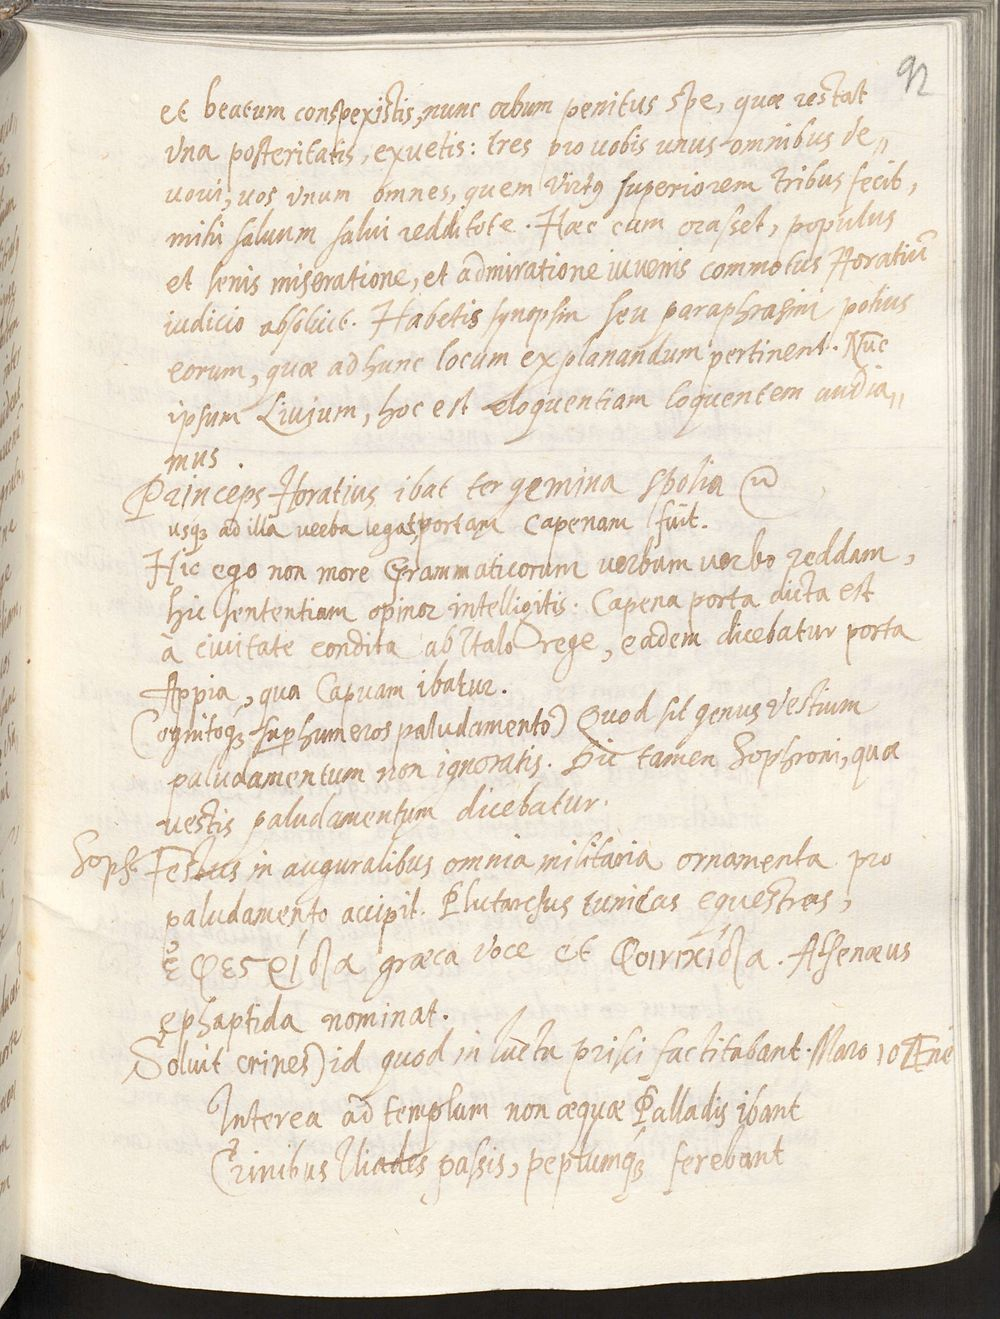 92
et beatum conspexistis, nunc orbum penitus spe, quæ restat
vna posteritatis, exuetis: tres pro uobis unus omnibus de„
uoui, uos vnum omnes, quem virtꝯ superiorem tribus fecit,
mihi saluum salui redditote. Hæc cum orasset, populus
et senis miseratione, et admiratione iuuenis commotus Horatiũ
iudicio absoluit. Habetis synopsin seu paraphrasim potius
eorum, quæ ad hunc locum explanandum pertinent. Nũc
ipsum Liuium, hoc est eloquentiam loquentem audia„
mus.
Princeps Horatius ibat tergemina spolia
usqꝫ ad illa uerba legas, portam Capenam fuit.
Hic ego non more Grammaticorum uerbum uerbo reddam,
hic sententiam opinor intelligitis: Capena porta dicta est
à ciuitate condita ab Italo rege, eadem dicebatur porta
Appia, qua Capuam ibatur.
Cognitoqꝫ suꝑ humeros paludamento) Quod sit genus vestium
paludamentum non ignoratis. Dic tamen Sophroni, quæ
vestis paludamentum dicebatur.
Soph. Festus in auguralibus omnia militaria ornamenta pro
paludamento accipit. Plutarchus tunicas equestres,
ἐφεςρίδα græca voce et φοινικίδα. Athenæus
ephaptida nominat.
Soluit crines) id quod in luctu prisci factitabant. Maro 10 Æne
Interea ad templum non æquæ Palladis ibant
Crinibus Iliades passis, peplumqꝫ ferebant